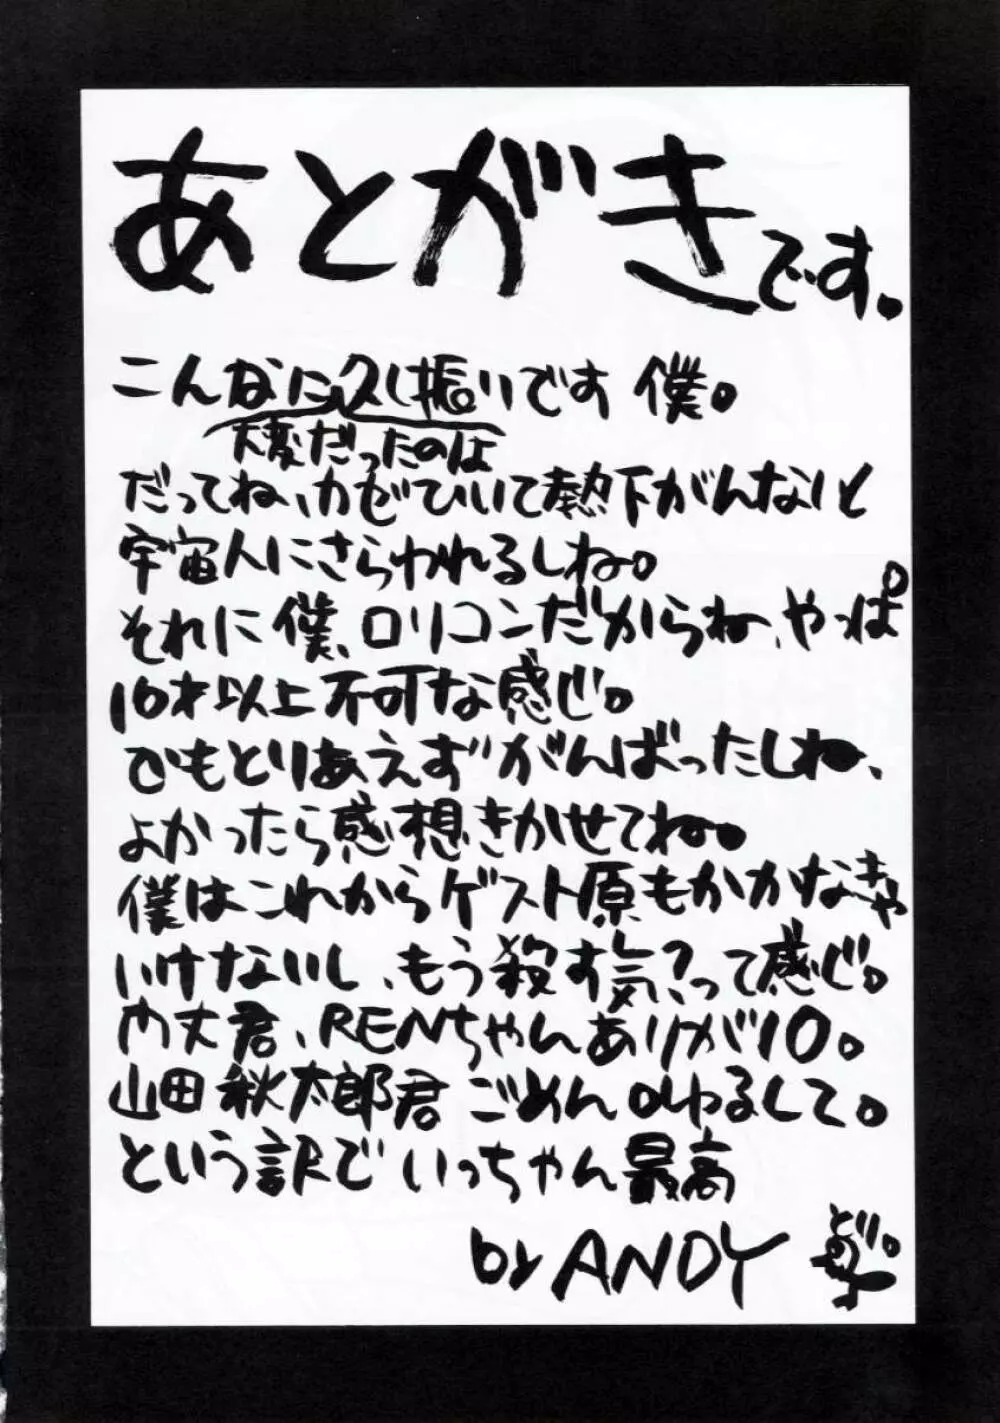 あとがきです。
こんなに久し振りです 僕。
大変だったのは
だってね、カゼひいて熱下がんないと
宇宙人にさらわれるしね。
それに僕、ロリコンだからね、やっぱ
10才以上不可な感じ。
でもとりあえずがんばったしね、
よかったら感想きかせてね。
僕はこれからゲスト原もかかなきゃ
いけないし、もう殺す気?って感じ。
内丈君、RENちゃんありが10。
山田秋太郎君 ごめん ゆるして。
という訳で いっちゃん最高
by ANDY
どり。